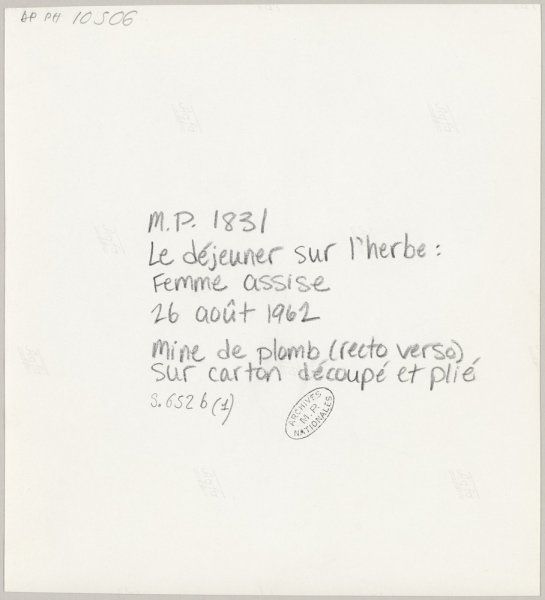 AP PH 10506
M.P. 1831
Le déjeuner sur l'herbe :
Femme assise
26 août 1962
Mine de plomb (recto verso)
sur carton découpé et plié
S.652 b (1)
ARCHIVES
M.P.
NATIONALES